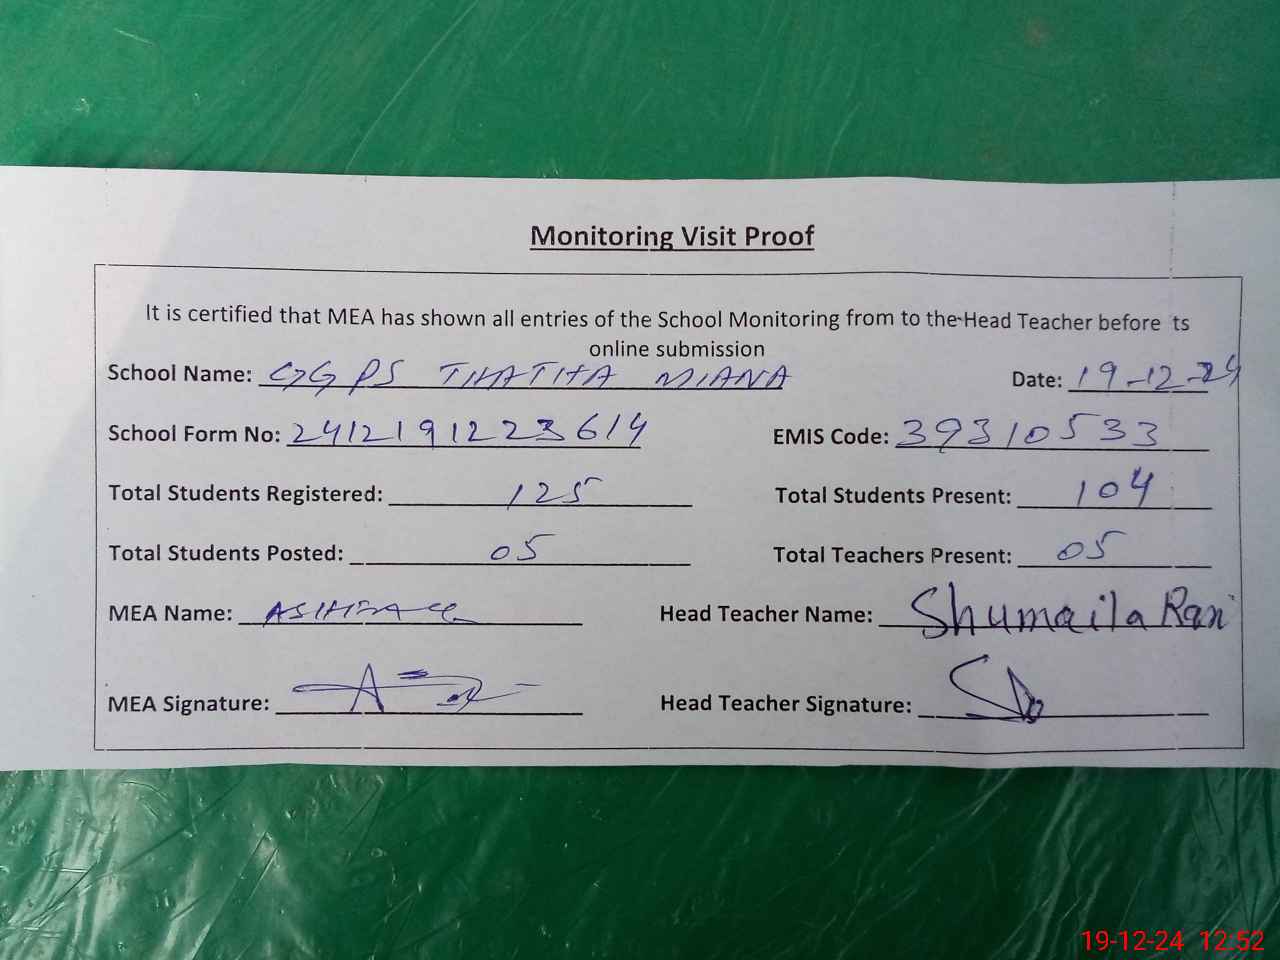 Monitoring Visit Proof
It is certified that MEA has shown all entries of the School Monitoring from to the Head Teacher before ts
online submission
School Name: GGPS THATHA MIANA Date: 19-12-24
School Form No: 2412191223614 EMIS Code: 39310533
Total Students Registered: 125 Total Students Present: 104
Total Students Posted: 05 Total Teachers Present: 05
MEA Name: Head Teacher Name: Shumaila Rani
MEA Signature: Head Teacher Signature:
19-12-24 12:52